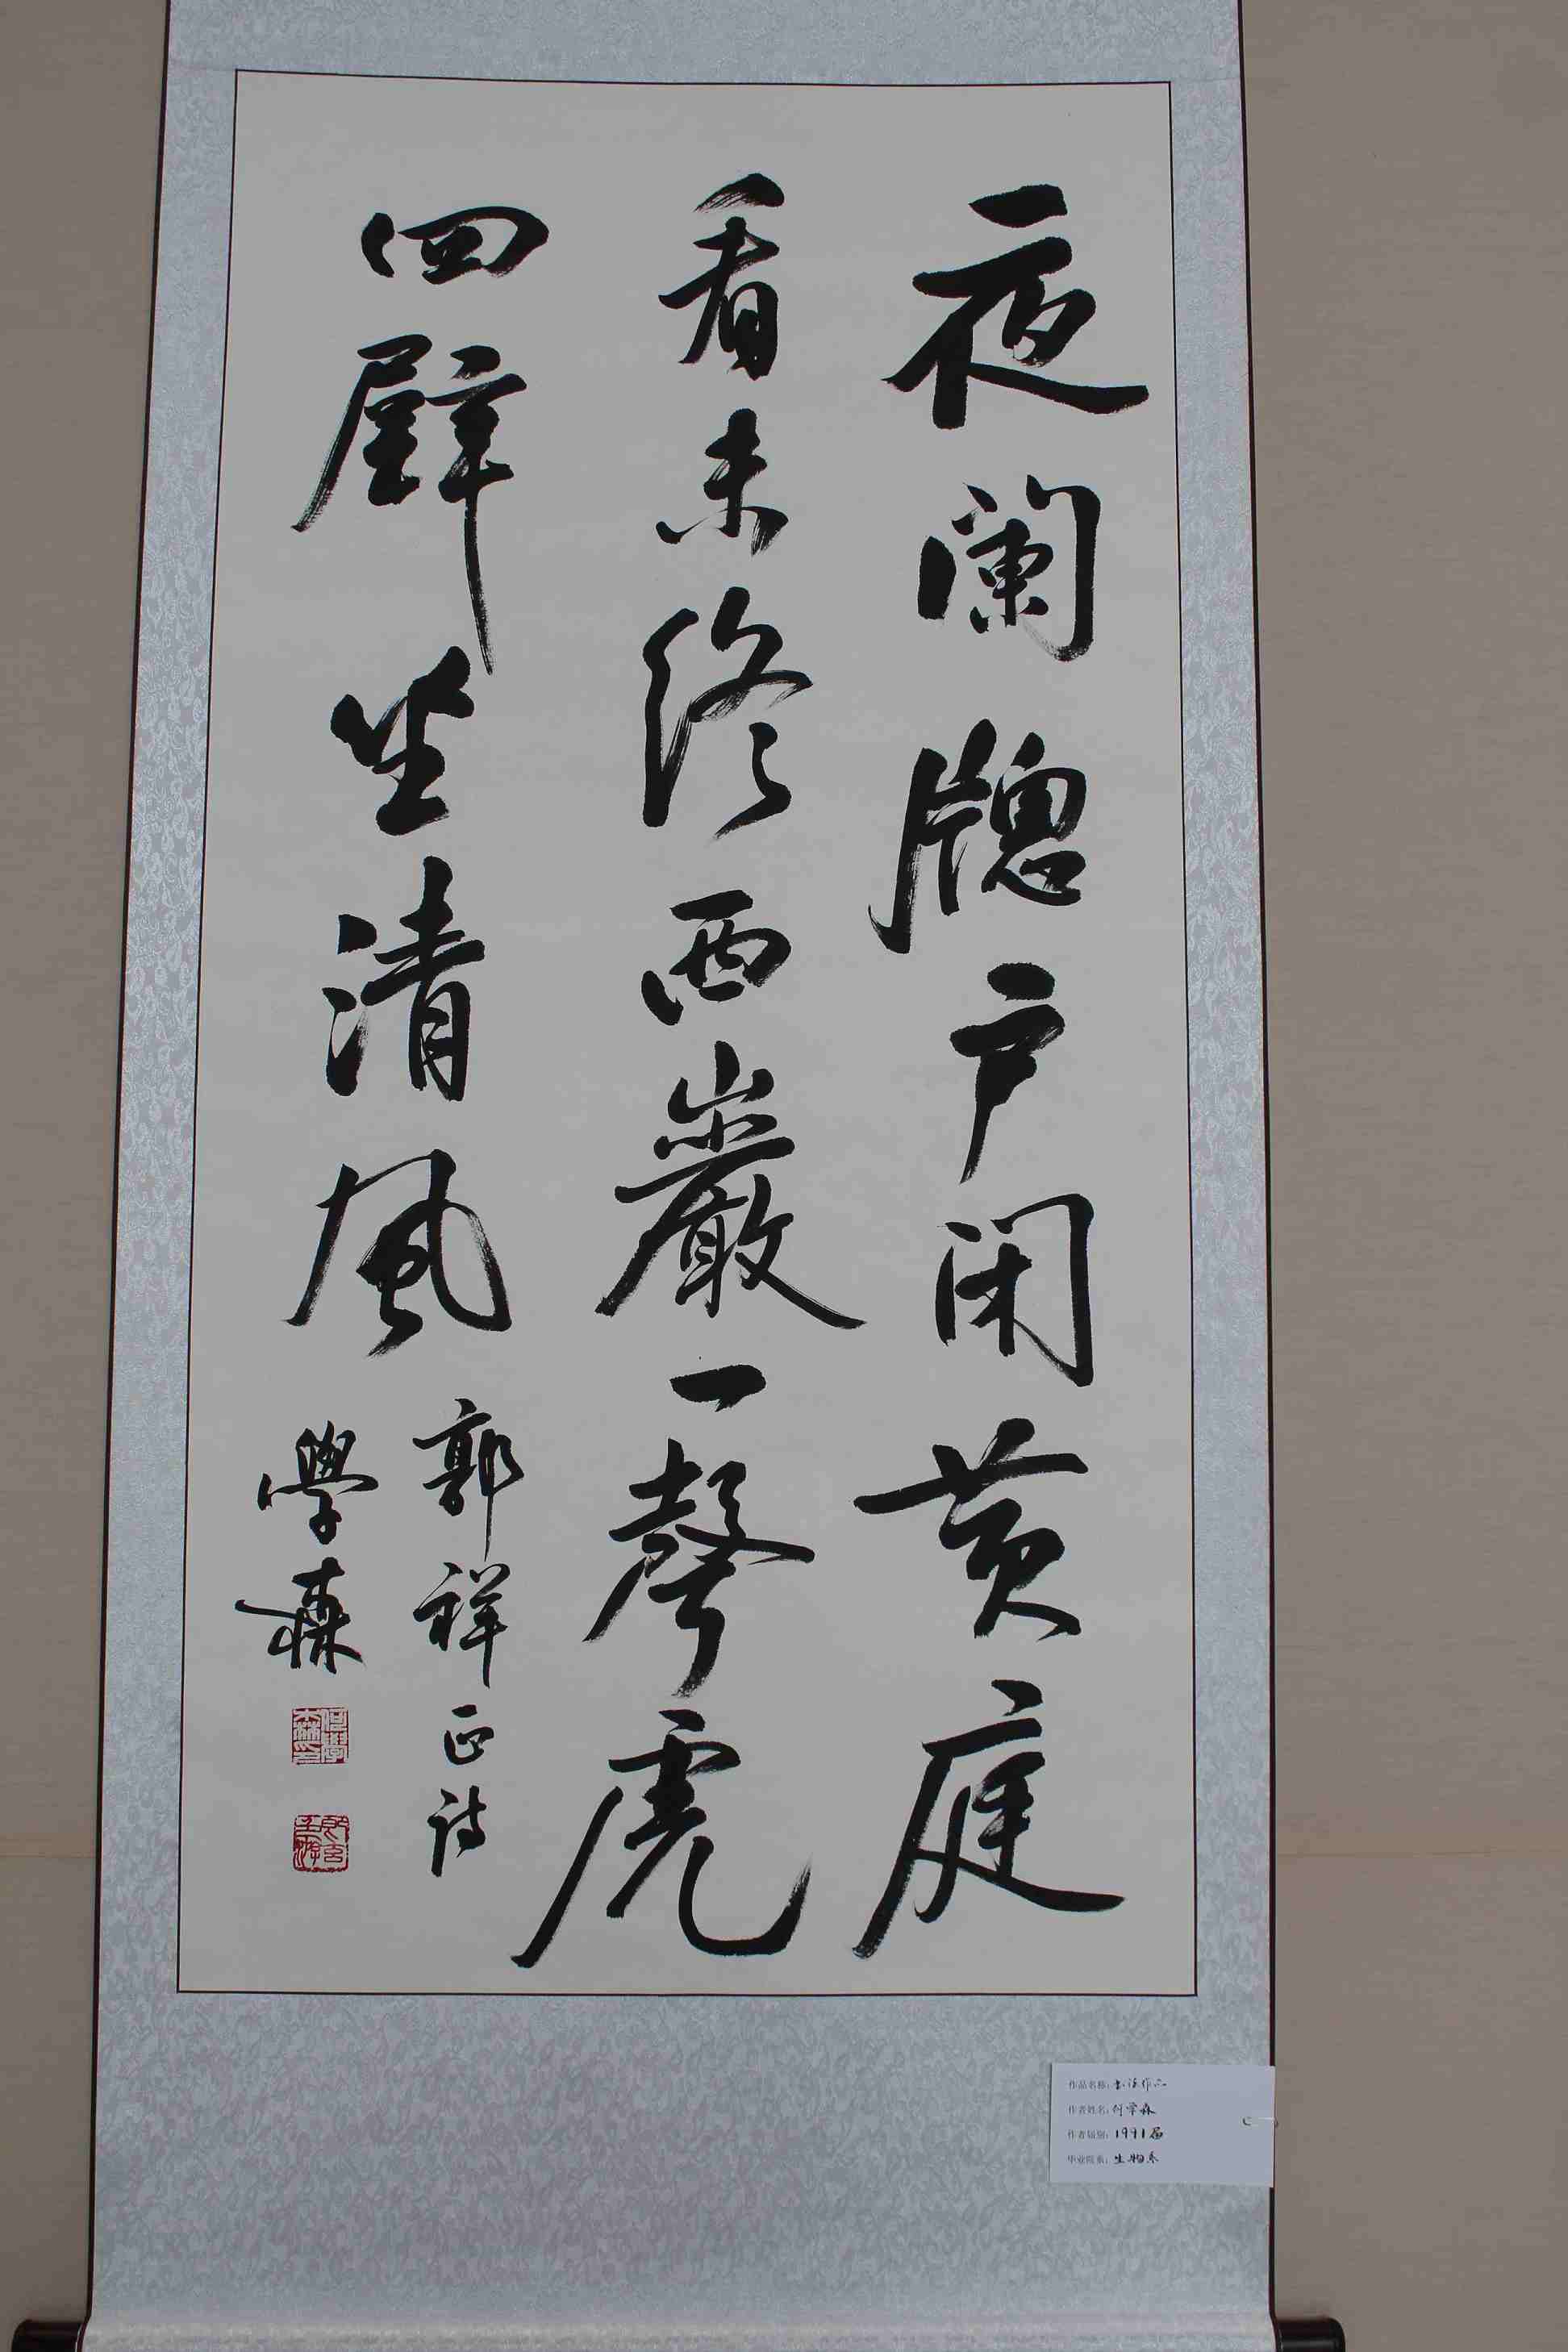 夜闌牕戶闭黄庭
看未終西巖一聲虎
四壁坐清風
郭祥正詩
學森
作品名称：书法作品
作者姓名：何学森
作者届别：1991届
毕业院系：生物系